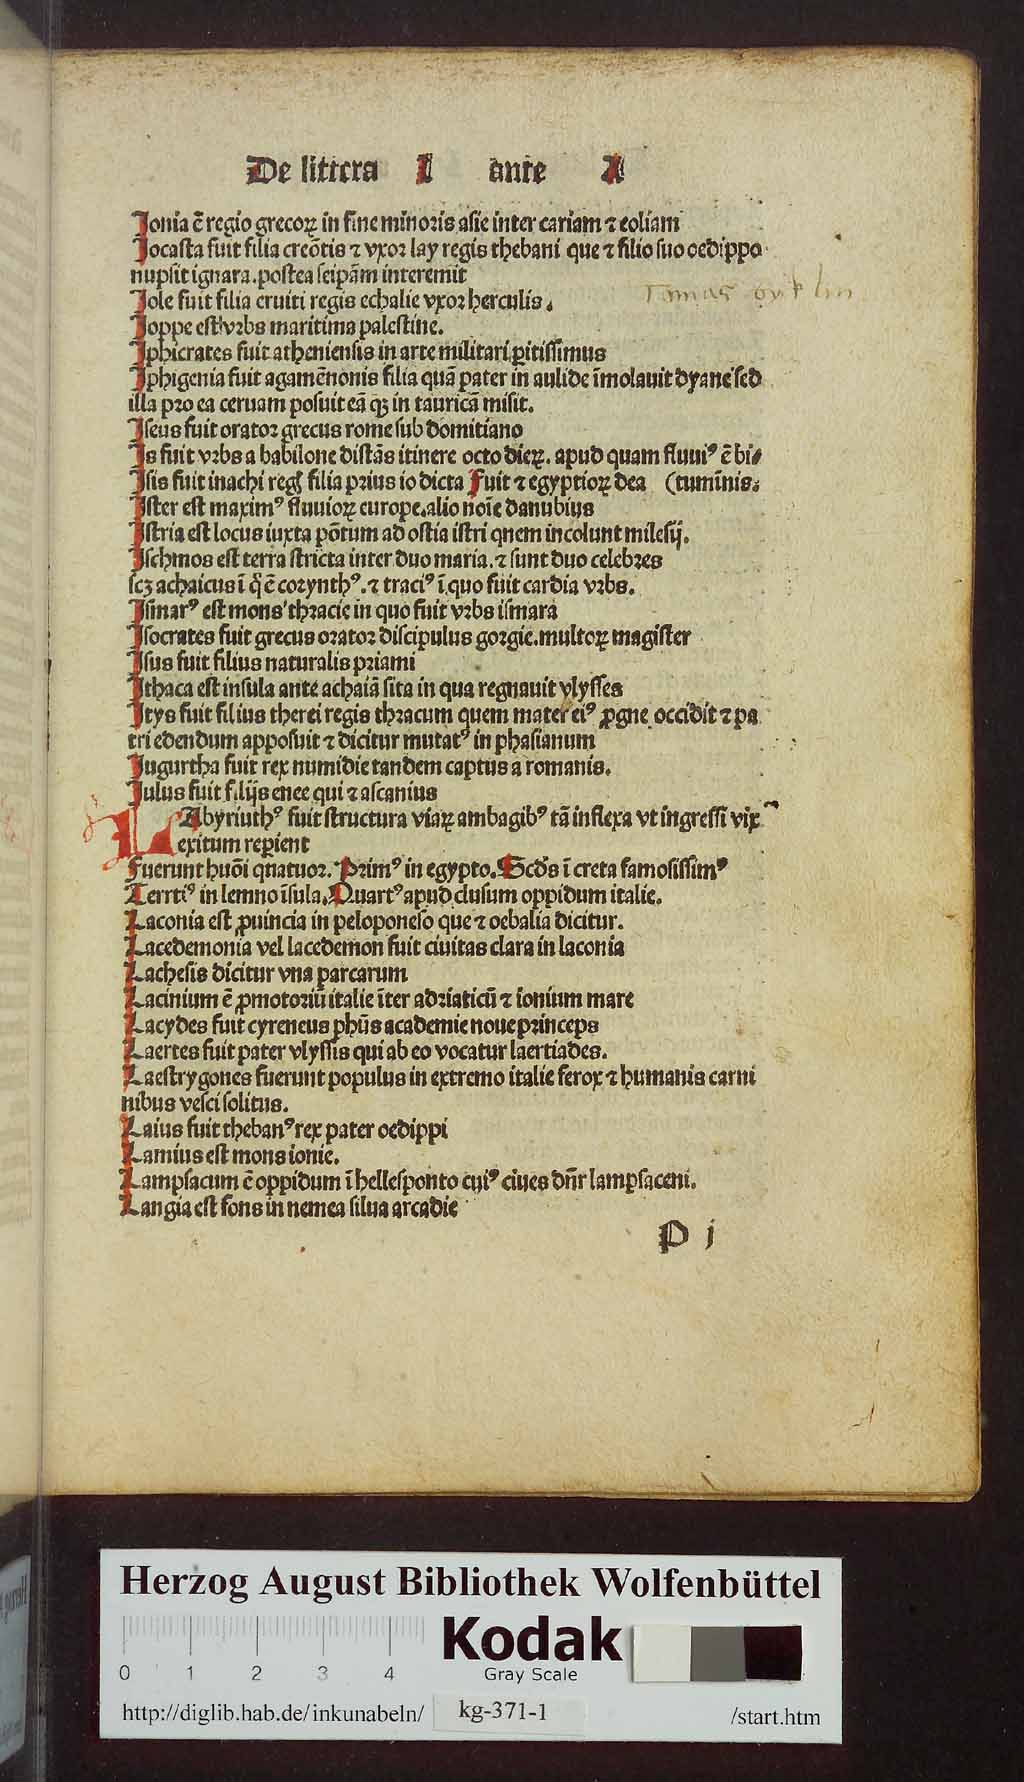 De littera I ante A
Jonia ē regio grecoꝝ in fine minoris asie inter cariam ⁊ eoliam
Jocasta fuit filia creōtis ⁊ vxor lay regis thebani que ⁊ filio suo oedippo
nupsit ignara. postea seipām interemit
Jole fuit filia eruiti regis echalie vxor herculis.
Joppe est vrbs maritima palestine.
Jphicrates fuit atheniensis in arte militari ꝑitissimus
Jphigenia fuit agamēnonis filia quā pater in aulide īmolauit dyane sed
illa pro ea ceruam posuit eā qꝫ in tauricā misit.
Jseus fuit orator grecus rome sub domitiano
Js fuit vrbs a babilone distās itinere octo dieꝝ. apud quam fluuiꝰ ē bi⸗
Jsis fuit inachi reḡ filia prius io dicta Fuit ⁊ egyptioꝝ dea (tumīnis.
Jster est maximꝰ fluuioꝝ europe. alio noīe danubius
Jstria est locus iuxta pōtum ad ostia istri qnem incolunt milesij.
Jschmos est terra stricta inter duo maria. ⁊ sunt duo celebres
scꝫ achaicus ī q̄ ē corynthꝰ. ⁊ traciꝰ ī quo fuit cardia vrbs.
Jsmarꝰ est mons thracie in quo fuit vrbs ismara
Jsocrates fuit grecus orator discipulus gorgie. multoꝝ magister
Jsus fuit filius naturalis priami
Jthaca est insula ante achaiā sita in qua regnauit vlysses
Jtys fuit filius therei regis thracum quem mater eiꝰ ꝓgne occidit ⁊ pa
tri edendum apposuit ⁊ dicitur mutatꝰ in phasianum
Jugurtha fuit rex numidie tandem captus a romanis.
Julus fuit filijs enee qui ⁊ ascanius
LAbyriuthꝰ fuit structura viaꝝ ambagibꝰ tā inflexa vt ingressi vix
exitum reꝑient
Fuerunt huōi qnatuor. Primꝰ in egypto. Scd̄s ī creta famosissimꝰ
Terrtiꝰ in lemno īsula. Quartꝰ apud clusum oppidum italie.
Laconia est ꝓuincia in peloponeso que ⁊ oebalia dicitur.
Lacedemonia vel lacedemon fuit ciuitas clara in laconia
Lachesis dicitur vna parcarum
Lacinium ē ꝓmotoriū italie īter adriaticū ⁊ ionium mare
Lacydes fuit cyreneus phūs academie noue princeps
Laertes fuit pater vlyssis qui ab eo vocatur laertiades.
Laestrygones fuerunt populus in extremo italie ferox ⁊ humanis carni
nibus vesci solitus.
Laius fuit thebanꝰ rex pater oedippi
Lamius est mons ionie.
Lampsacum ē oppidum ī hellesponto cuiꝰ ciues dn̄r lampsaceni.
Langia est fons in nemea silua arcadie
P j
Herzog August Bibliothek Wolfenbüttel
Kodak
Gray Scale
0 1 2 3 4
http://diglib.hab.de/inkunabeln/ kg-371-1 /start.htm